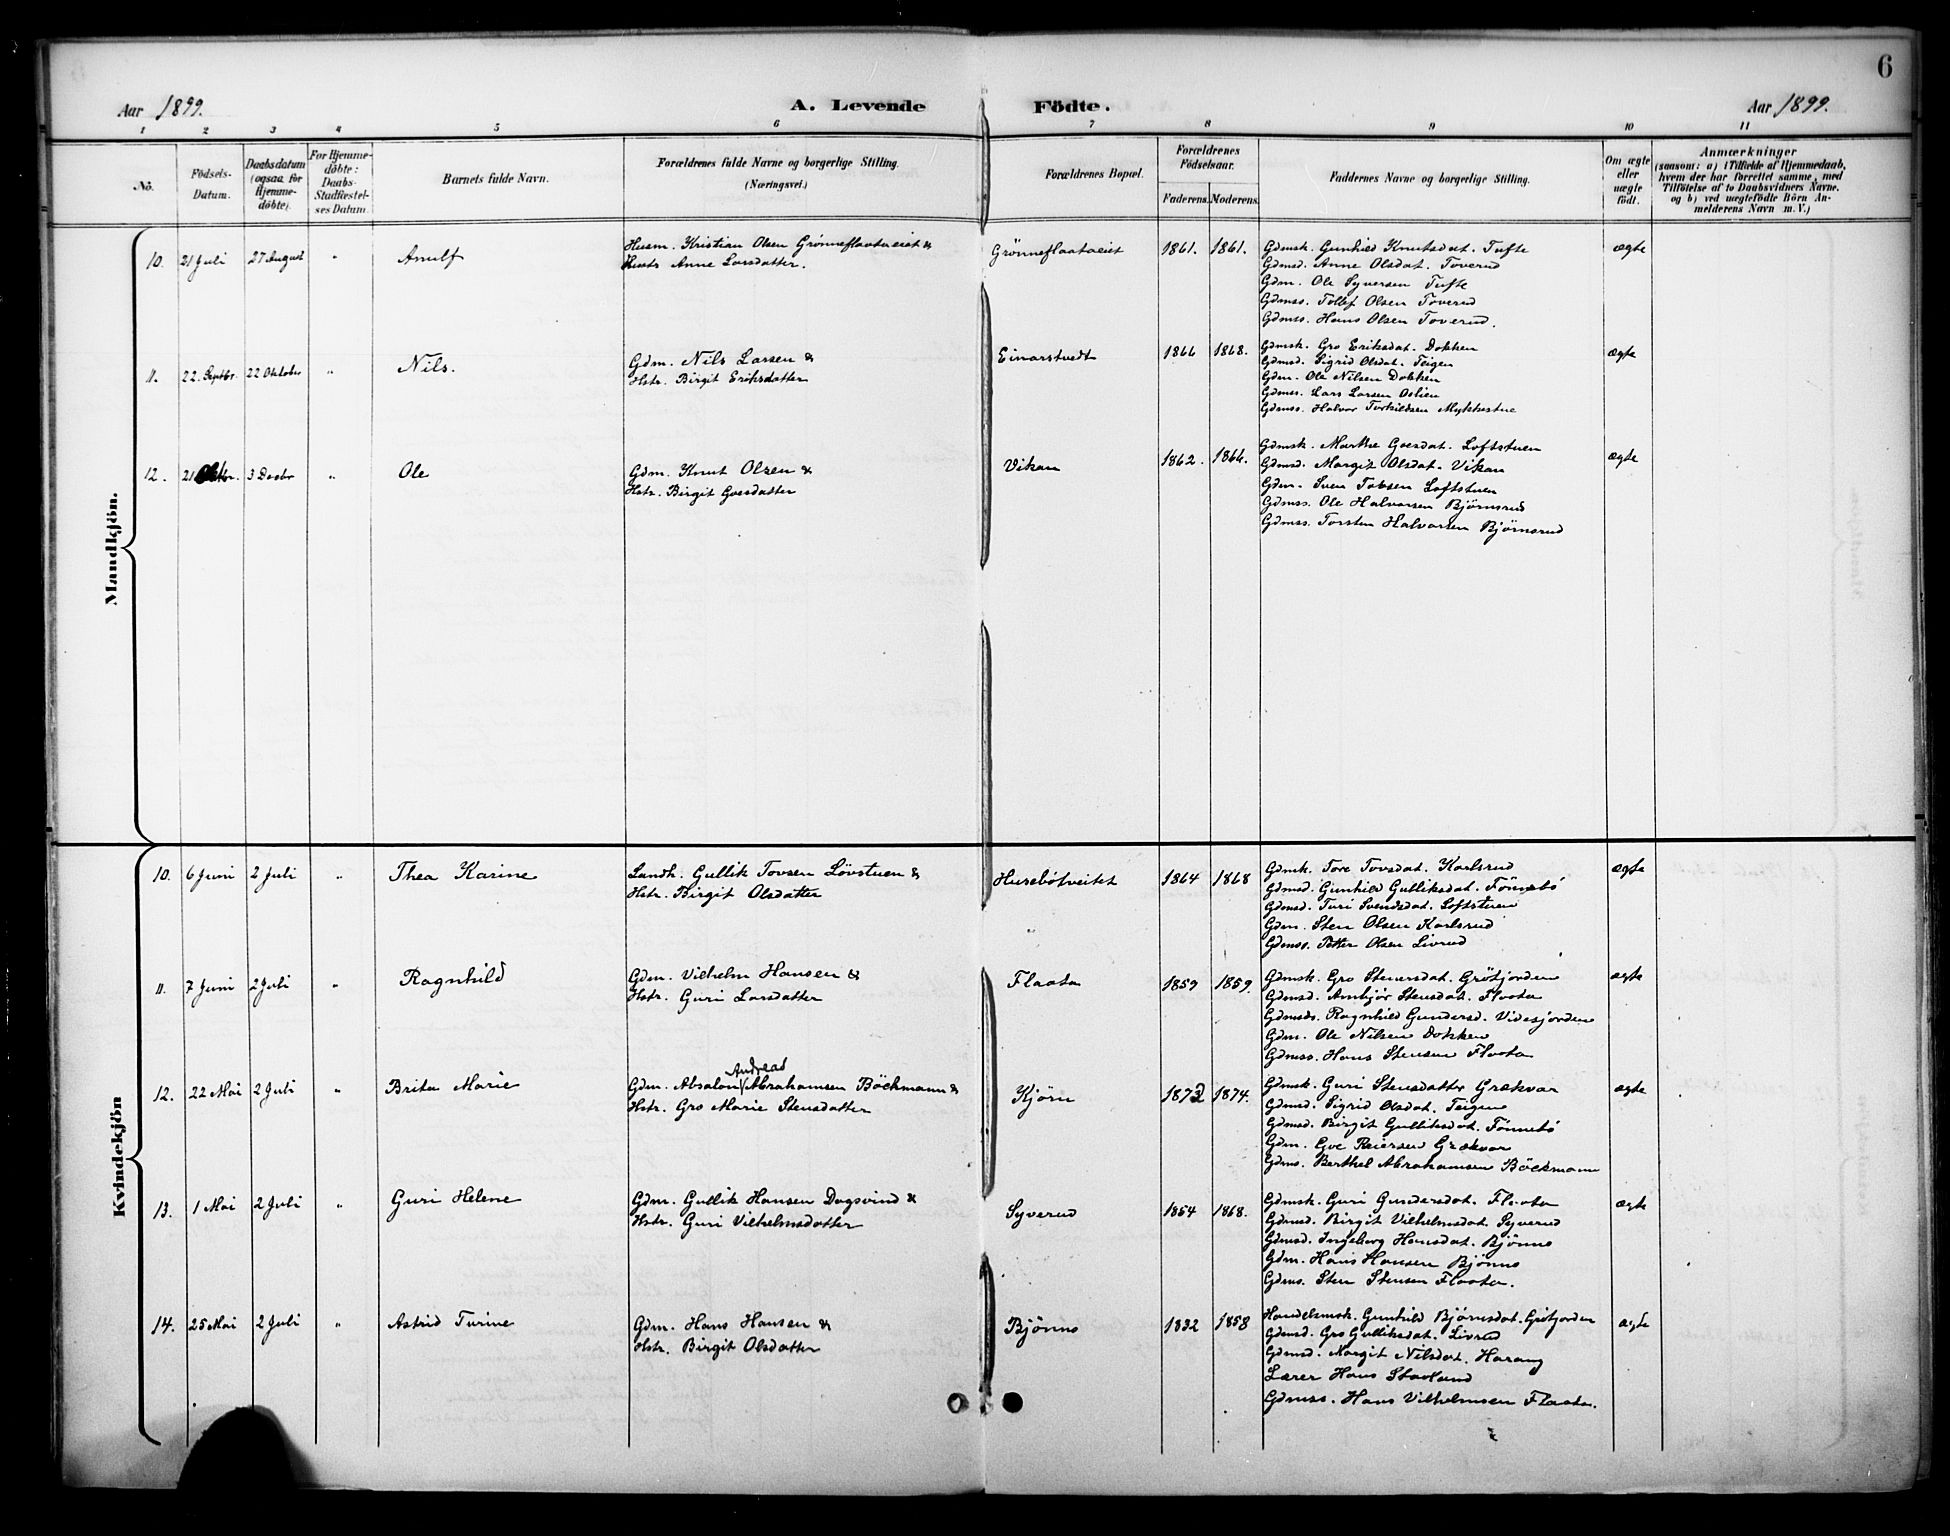 6
Aar 1899. A. Levende Födte. Aar 1899.
1 2 3 4 5 6 7 8 9 10 11
No.
Födsels-Datum.
Daabsdatum (ogsaa for Hjemme-döbte).
For Hjemme-döbte: Daabs-Stadfæstel-ses Datum.
Barnets fulde Navn.
Forældrenes fulde Navne og borgerlige Stilling.
(Næringsvei.)
Forældrenes Bopæl.
Forældrenes Födselsaar.
Faderens. Moderens.
Faddernes Navne og borgerlige Stilling.
Om ægte eller uægte födt.
Anmærkninger
(saasom: a) i Tilfælde af Hjemmedaab,
hvem der har forrettet samme, med
Tilföielse af to Daabsvidners Navne.
og b) ved uægtefödte Börn An-
melderens Navn m. V.)
Mandkjön.
10. 21 Juli 27 August " Arnulf
Husm. Kristian Olsen Grønneflaataeiet &
Hustr. Anne Larsdatter.
Grönneflaataeiet 1861. 1861.
Gdmsk. Gunhild Knutsdat. Tufte
Gdmsd. Anne Olsdat. Toverud
Gdm. Ole Syversen Tufte
Gdmss. Tollef Olsen Toverud
Gdmss. Hans Olsen Toverud.
ægte
11. 22. Septbr. 22 Oktober " Nils.
Gdm. Nils Larsen &
Hstr. Birgit Eriksdatter
Einarstvedt 1866 1868.
Gdmsk. Gro Eriksdat. Dokken
Gdmsd. Sigrid Olsdat. Teigen
Gdm. Ole Nilsen Dokken
Gdmss. Lars Larsen Oslien
Gdmss. Halvor Torkildsen Mykkestue
ægte
12. 21 Oktbr. 3 Decbr " Ole
Gdm. Knut Olsen &
Hstr. Birgit Goesdatter
Vikan 1862. 1866.
Gdmsk. Marthe Goesdat. Loftstuen
Gdmsd. Margit Olsdat. Vikan
Gdm. Sven Tobsen Loftstuen
Gdmss. Ole Halvorsen Bjørnsrud
Gdmss. Torsten Halvorsen Bjørnsrud
ægte
Kvindekjön
10. 6 Juni 2 Juli " Thea Karine
Landh. Gullik Tovsen Lövstuen &
Hstr. Birgit Olsdatter
Husebötveitet 1864 1868
Gdmsk. Tore Tovsdat. Karlsrud
Gdmsd. Gunhild Gulliksdat. Fönnebö
Gdmsd. Turi Svendsdat. Loftstuen
Gdm. Sten Olsen Karlsrud
Gdmss. Petter Olsen Livrud
ægte
11. 7 Juni 2 Juli " Ragnhild
Gdm. Vilhelm Hansen &
Hstr. Guri Larsdatter
Flaata 1859 1859.
Gdmsk. Gro Stenersdat. Gröfjorden
Gdmsd. Ambjör Stensdat. Flaata
Gdmsds. Ragnhild Gundersd. Videsjorden
Gdm. Ole Nilsen Dokken
Gdmss. Hans Stensen Flaata
ægte
12. 22 Mai 2 Juli " Brita Marie
Andreas
Gdm. Absalon Abrahamsen Böckmann &
Hstr. Gro Marie Stensdatter
Kjörn 1873 1874.
Gdmsk. Guri Stensdatter Grækvar
Gdmsd. Sigrid Olsdat. Teigen
Gdmsd. Birgit Gulliksdat. Fönnebö
Gdm. Goe Reiersen Grækvar
Gdms. Berthel Abrahamsen Böckmann
ægte
13. 1 Mai 2 Juli " Guri Helene
Gdm. Gullik Hansen Dagsvind &
Hstr. Guri Vilhelmsdatter
Syverud 1854 1868.
Gdmsk. Guri Gundersdat. Flaata
Gdmsd. Birgit Vilhelmsdat. Syverud
Gdmsd. Ingeborg Hansdat. Bjönno
Gdm. Hans Hansen Bjönno
Gdms. Sten Stensen Flaata.
ægte
14. 25 Mai 2 Juli " Astrid Turine
Gdm. Hans Hansen &
Hstr. Birgit Olsdatter
Bjönno 1832 1858
Handelsmsk. Gunhild Bjørnsdat. Gröfjorden
Gdmsd. Gro Gulliksdat. Livrud
Gdmsd. Margit Nilsdat. Harang
Lærer Hans Stavlund
Gdmss. Hans Vilhelmsen Flaata.
ægte